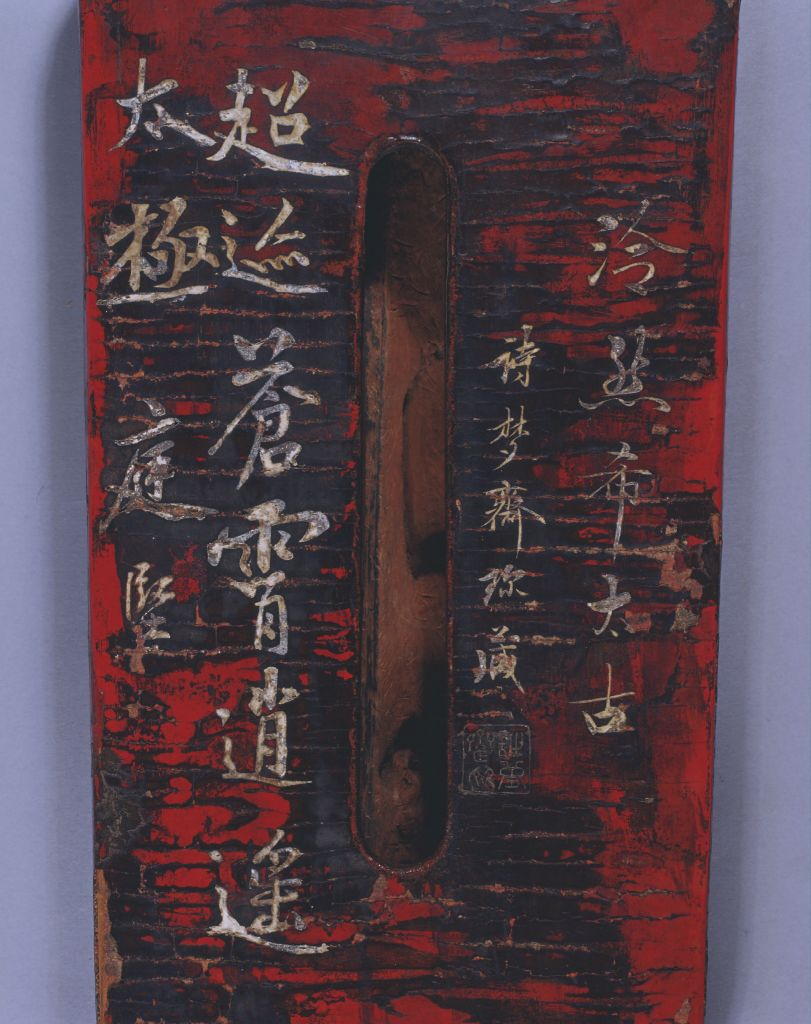 泠然希太古
詩梦齋珍藏
超迹蒼霄逍遥
太極庭堅